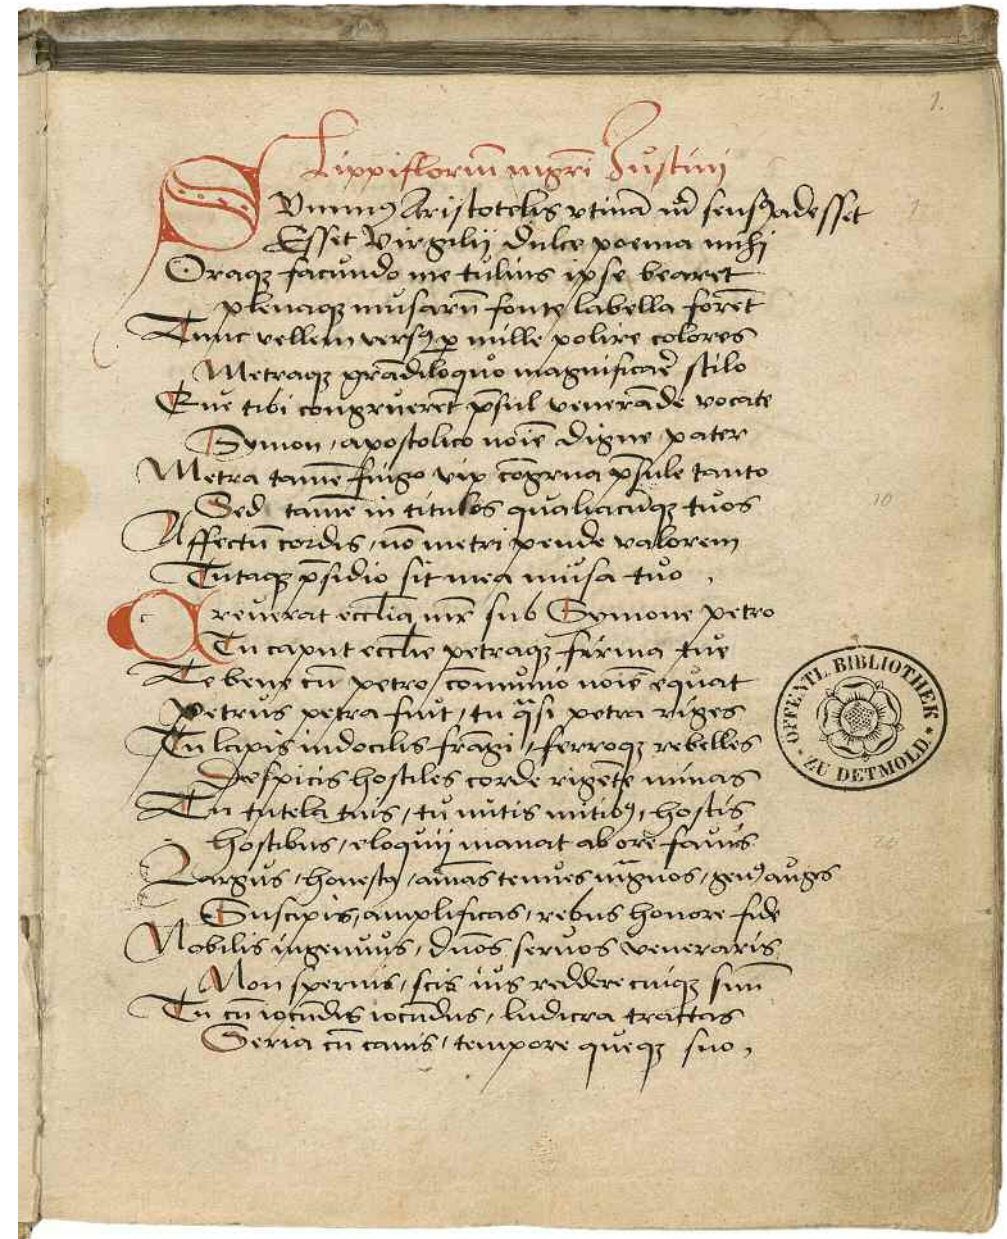 1.
Lippifloriũ mgrĩ Justini
SVmmꝰ Aristotelis vtinã m̃ sensꝰ adesset
Esset Virgilij dulce poema michi
Oraqꝫ facundo me tulius ipse bearet
plenaqꝫ musarũ fonte labella forẽt
Tunc vellem versꝰ ꝑ mille polire colores
Metraqꝫ grãdiloquo magnificarẽ stilo
Que tibi congruerẽt p̃sul venerãde vocate
Symon, apostolico noiẽ digne pater
Metra tamẽ fingo vix cõgrua p̃sule tanto
Sed tamẽ in titulos qualiacũqꝫ tuos
Affectũ cordis, nõ metri pende valorem
Tutaqꝫ p̃sidio sit mea musa tuo,
Creuerat ecclĩa mr̃ sub Symone petro
Tu caput ecclĩe petraqꝫ firma tue
Te bene cũ petro, cõmunio noiẽ equat
Petrus petra fuit, tu q̃si petra riges
Tu lapis indocilis frãgi, ferroqꝫ rebelles
Despicis hostiles corde rigẽte minas
Tu tutela tuis, tu mitis mitibꝰ, hostis
hostibus, eloquij manat ab ore fauus
Largus, honestꝰ, amas tenues mãgnos, genꝰ auges
Suscipis, amplificas, rebus honore fide
Nobilis ingenuus, dños seruos veneraris
Non spernis, scis ius reddere cuiqꝫ suũ
Tu cũ iocũdis iocũdus, ludicra tractas
Seria cũ canis, tempore queqꝫ suo,
1
10
20
OFFENTL BIBLIOTHEK
ZU DETMOLD